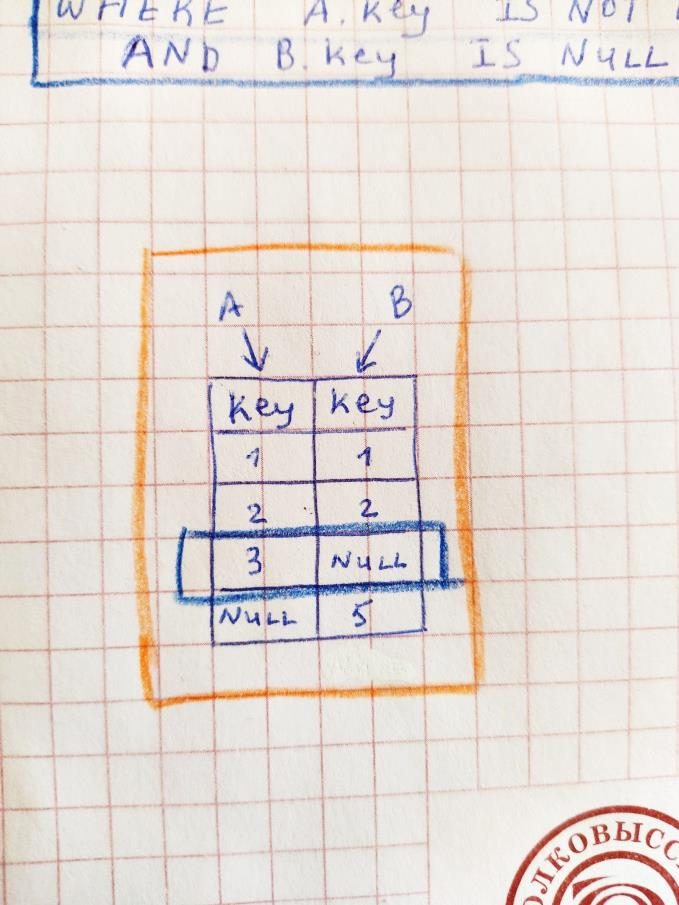 WHERE A.Key IS NOT
AND B.Key IS NULL
A B
Key Key
1 1
2 2
3 NULL
NULL 5